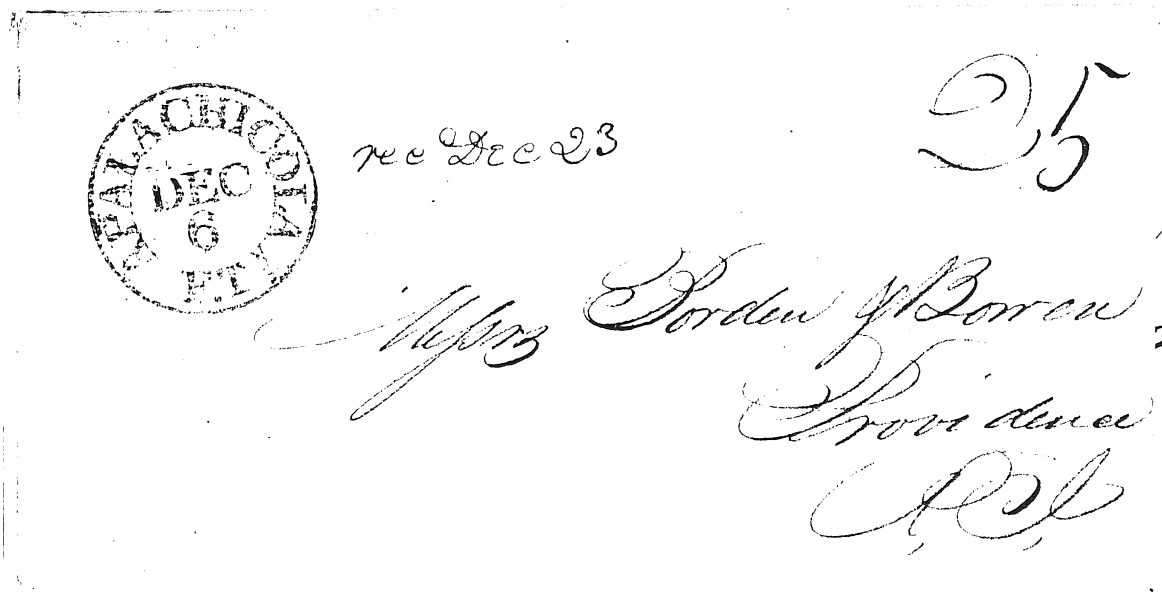 APALACHICOLA Fl.T.
DEC
6
rec Dec 23
25
Messrs Borden & Bowen
Providence
R. I,